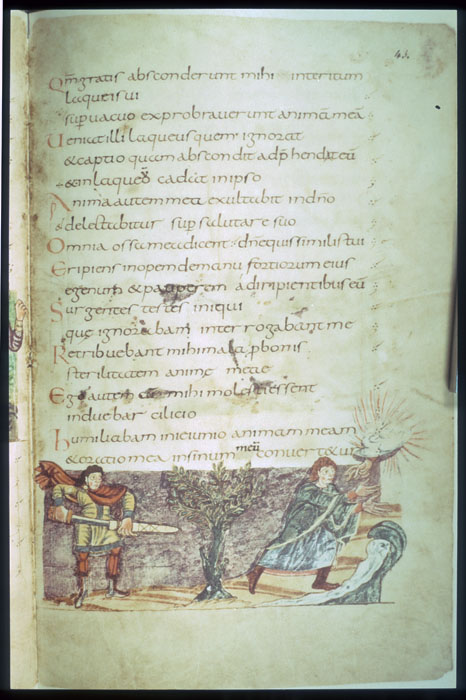 43.
Qm̄ gratis absconderunt mihi interitum
laquei sui
sup̱ vacuo exprobraverunt animā meā
Veniat illi laqueus quem ignorat
& captio quam abscondit adp̱hendat eū
& in laqueū cadat in ipso
Anima autem mea exultabit in dn̄o
& delectabitur sup̱ salutare suo
Omnia ossa mea dicent dn̄e quis similis tui
Eripiens inopem de manu fortiorum eius
egenum & pauperem a diripientibus eū
Surgentes testes iniqui
quę ignorabam interrogabant me
Retribuebant mihi mala p̱ bonis
sterilitatem animę meae
Ego autem cum mihi molesti essent
induebar cilicio
humiliabam in ieiunio animam meam
& oratio mea in sinum meū convertetur